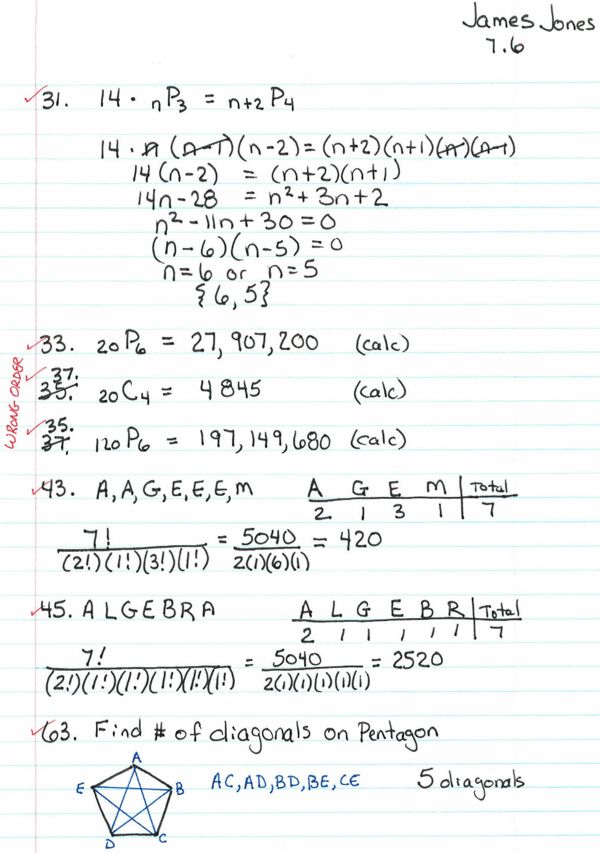 James Jones
7.6
✓31. 14 · ₙP₃ = ₙ₊₂P₄
14 · n (n-1)(n-2) = (n+2)(n+1)(n)(n-1)
14(n-2) = (n+2)(n+1)
14n-28 = n²+3n+2
n²-11n+30=0
(n-6)(n-5)=0
n=6 or n=5
{6,5}
✓33. ₂₀P₆ = 27,907,200 (calc)
WRONG ORDER
✓37.
35. ₂₀C₄ = 4845 (calc)
✓35.
37. ₁₂₀P₆ = 197,149,680 (calc)
✓43. A,A,G,E,E,E,M A G E M | Total
2 1 3 1 | 7
7! / (2!)(1!)(3!)(1!) = 5040 / 2(1)(6)(1) = 420
✓45. ALGEBRA A L G E B R | Total
2 1 1 1 1 1 | 7
7! / (2!)(1!)(1!)(1!)(1!)(1!) = 5040 / 2(1)(1)(1)(1)(1) = 2520
✓63. Find # of diagonals on Pentagon
A
E B AC,AD,BD,BE,CE 5 diagonals
D C